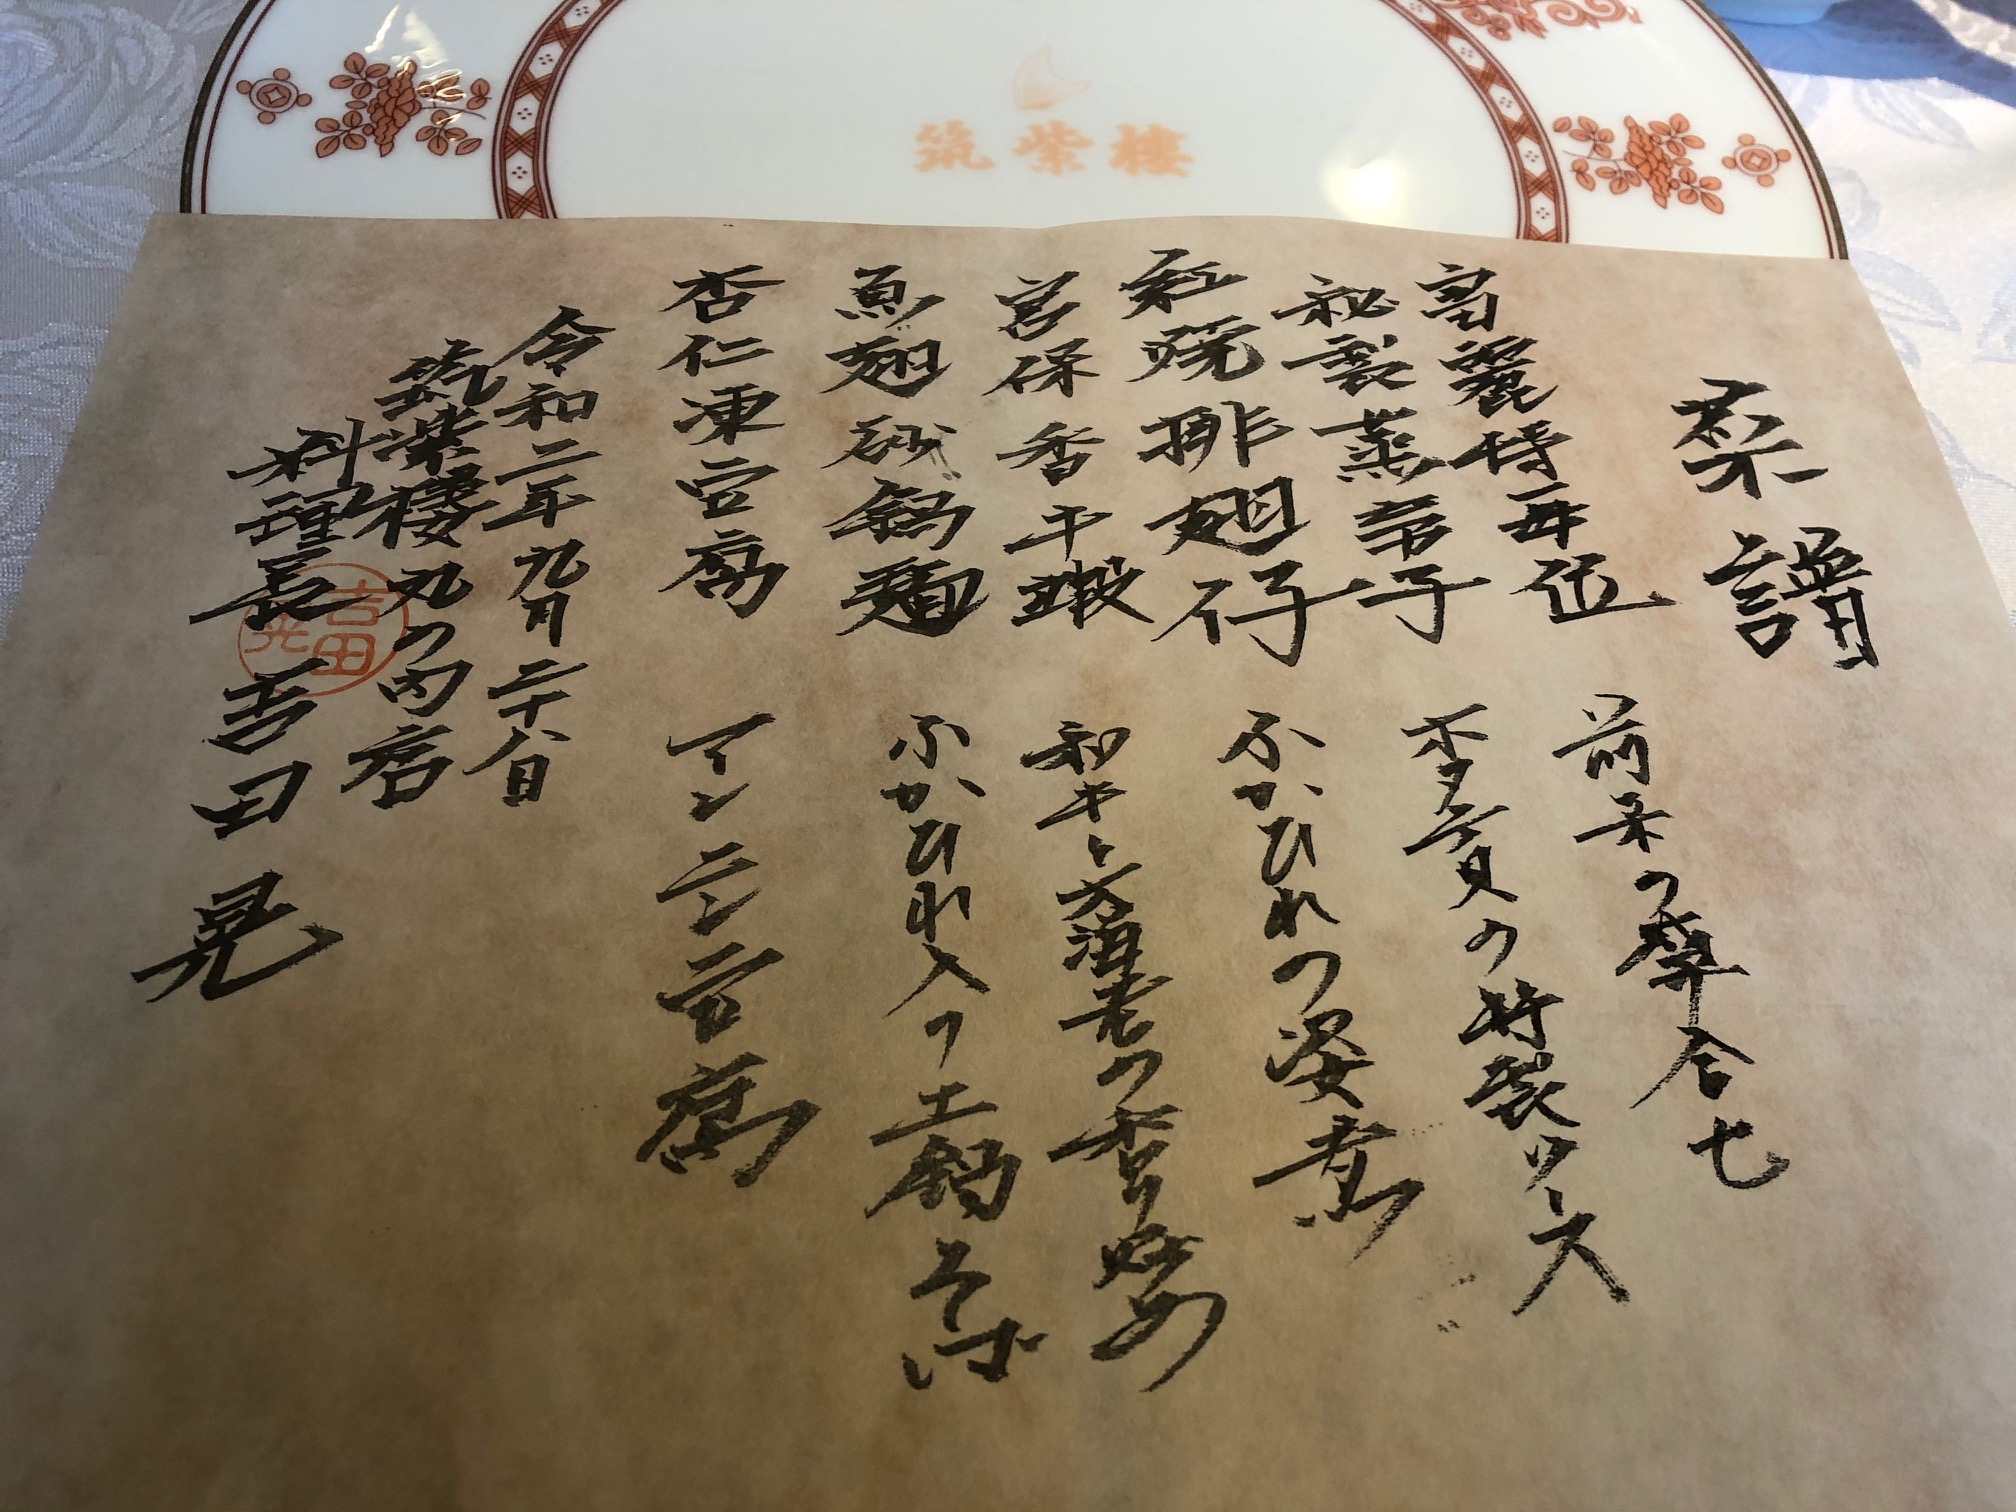 筑紫樓
菜譜
富麗特冊位 前菜の盛合せ
秘製蒸帯子 ホタテ貝の特製ソース
紅焼排翅仔 ふかひれの姿煮
宮保香干蝦 和牛と大海老の香り炒め
魚翅砂鍋麺 ふかひれ入り土鍋そば
杏仁凍豆腐 アンニン豆腐
令和二年九月二十八日
筑紫樓丸の内店
料理長 吉田 晃
吉田
晃